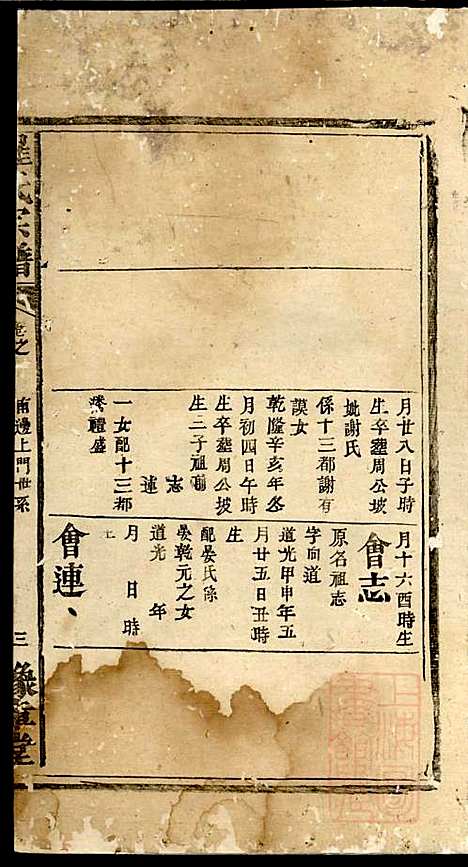 月廿八日子時
生卒塟周公坡
妣謝氏
係十三都謝有
謨女
乾隆辛亥年冬
月初四日午時
生卒塟周公坡
生二子祖
志
連
一女配十三都
禮盛
月十六酉時生
會志
原名祖志
字向道
道光甲申年五
月廿五日丑時
生
配晏氏係
晏乾元之女
道光 年
月 日 時
會連、
氏宗譜
卷之
南邊上門世系
三
豫章堂